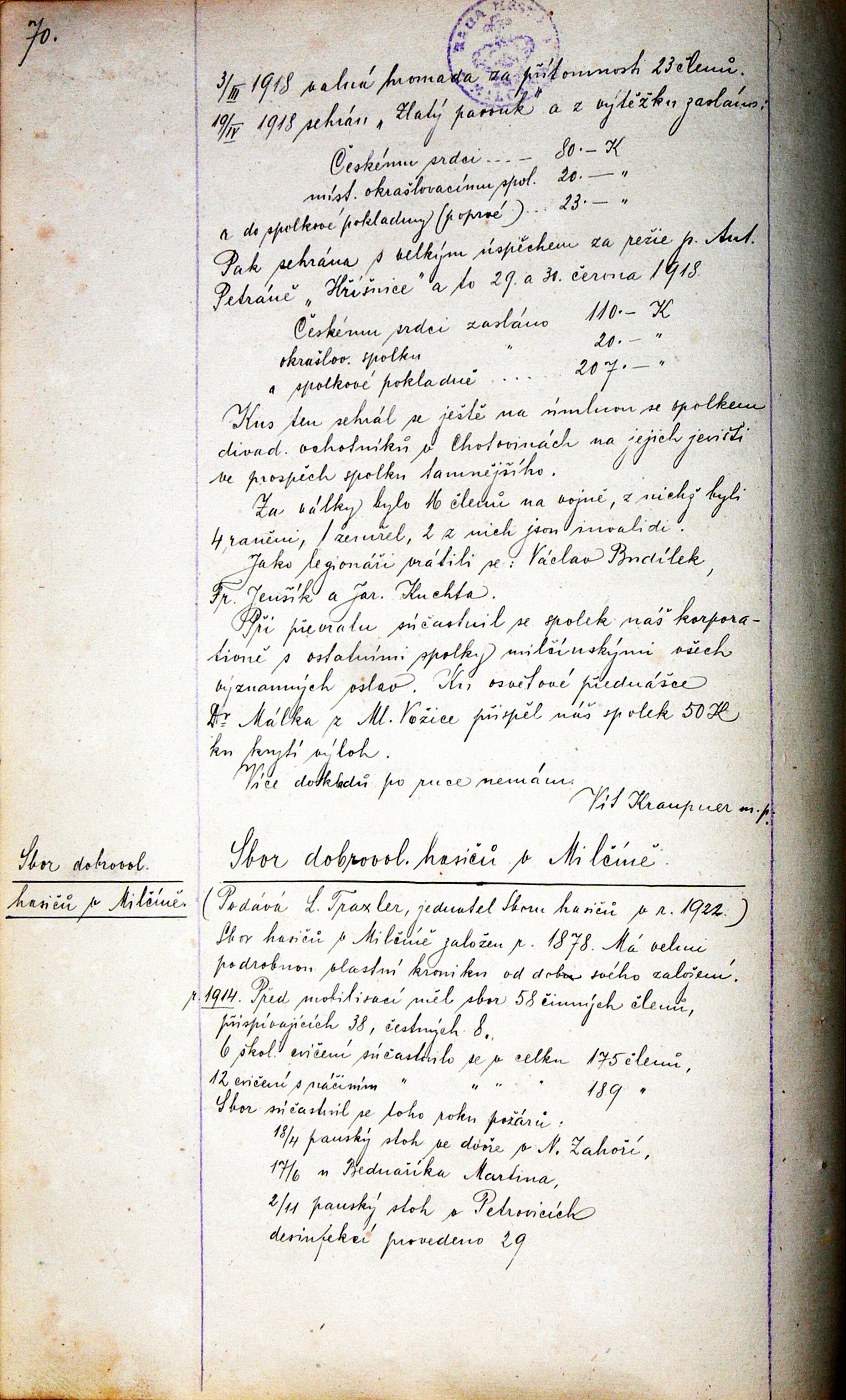 70.
3/III 1918 valná hromada za přítomnosti 23 členů.
19/IV 1918 sehrán „Zlatý pavouk" a z výtěžku zasláno:
Českému srdci ... — 80.— K
míst. okrašlovacímu spol. 20.— "
a do spolkové pokladny (poprvé) .. 23.— "
Pak sehrána s velkým úspěchem za režie p. Ant.
Petráně „Hříšnice" a to 29. a 30. června 1918.
Českému srdci zasláno 110.— K
okrašlov. spolku " 20.— "
a spolkové pokladně .... 207.— "
Kus ten sehrál se ještě na úmluvu se spolkem
divad. ochotníků v Chotovinách na jejich jevišti
ve prospěch spolku tamnějšího.
Za války bylo 16 členů na vojně, z nichž byli
4 raněni, 1 zemřel, 2 z nich jsou invalidi.
Jako legionáři vrátili se: Václav Budílek,
Fr. Jenšík a Jar. Kuchta.
Při převratu súčastnil se spolek náš korpora-
tivně s ostatními spolky milčínskými všech
významných oslav. Ku osvětové přednášce
Dr. Málka z Ml. Vožice přispěl náš spolek 50 K
ku krytí výloh.
Více dokladů po ruce nemám.
Vít Kraupner m.p.
Sbor dobrovol.
hasičů v Milčíně.
Sbor dobrovol. hasičů v Milčíně.
(Podává L. Traxler, jednatel Sboru hasičů v r. 1922.)
Sbor hasičů v Milčíně založen r. 1878. Má velmi
podrobnou vlastní kroniku od svého založení.
r. 1914. Před mobilisací měl sbor 58 činných členů,
přispívajících 38, čestných 8.
6 škol. cvičení súčastnilo se v celku 175 členů,
12 cvičení s náčiním " " " " 189 "
Sbor súčastnil se toho roku požárů:
18/4 panský stoh ve dvoře v N. Zahoří,
17/6 u Bednaříka Martina,
2/11 panský stoh v Petrovicích
desinfekcí provedeno 29